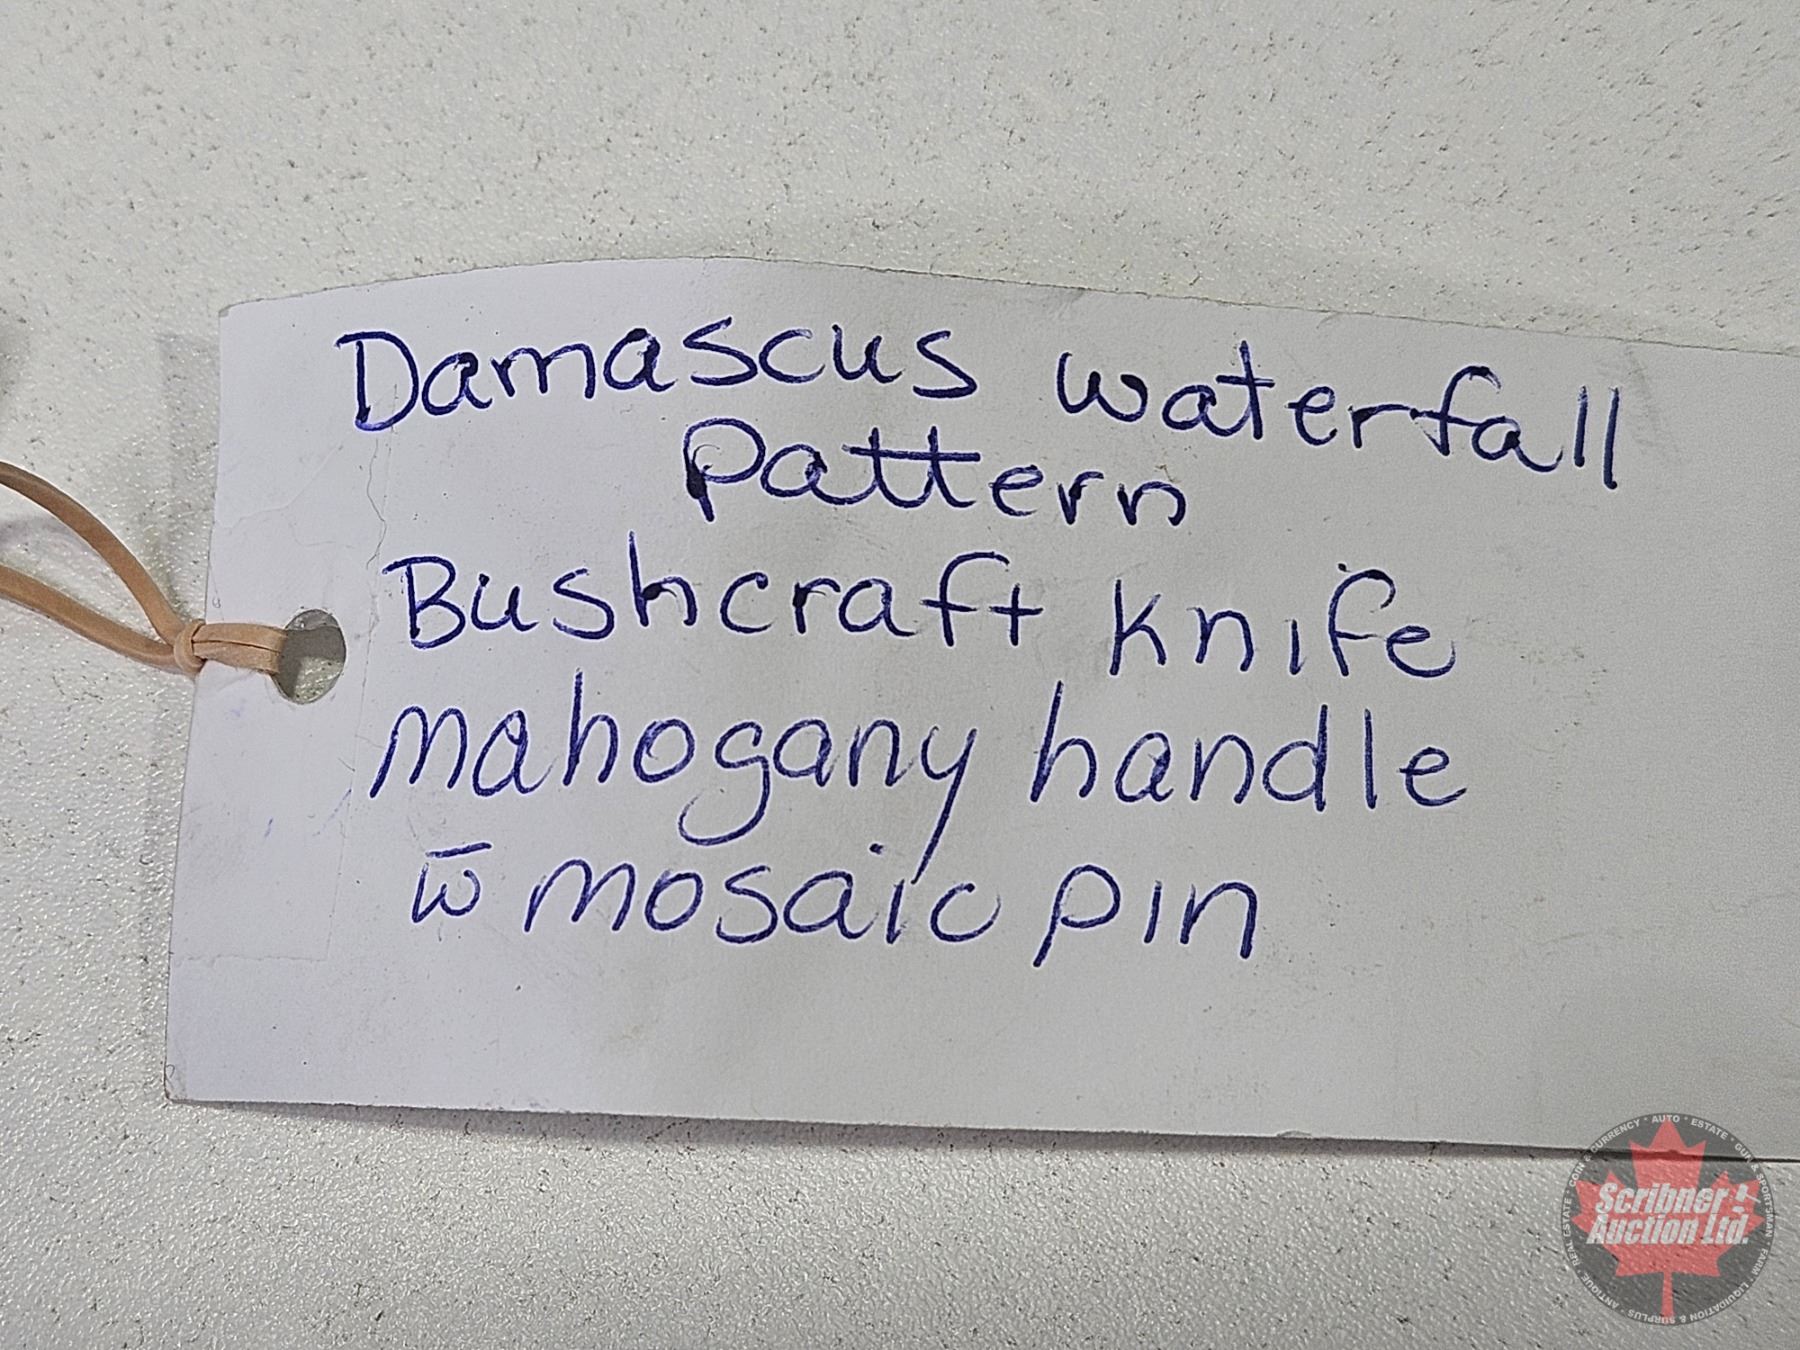 Damascus waterfall
Pattern
Bushcraft Knife
mahogany handle
w̄ mosaic pin
Scribner
Auction Ltd.
COIN & CURRENCY * AUTO * ESTATE * GUN & SPORTSMAN * FARM * LIQUIDATION & SURPLUS * ANTIQUE * REAL ESTATE *